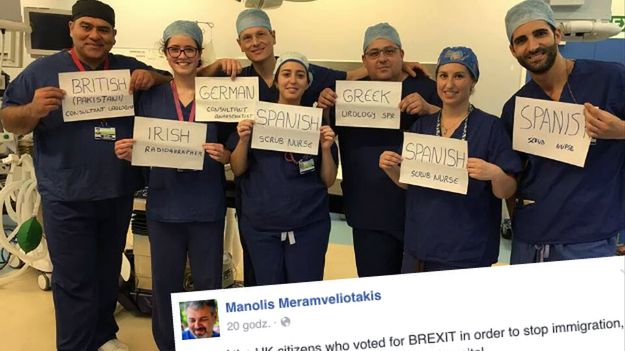 BRITISH
(PAKISTANI)
CONSULTANT UROLOGIST
IRISH
RADIOGRAPHER
GERMAN
CONSULTANT
ANAESTHETIST
SPANISH
SCRUB NURSE
GREEK
UROLOGY SPR
SPANISH
SCRUB NURSE
SPANISH
SCRUB NURSE
Manolis Meramveliotakis
20 godz.
UK citizens who voted for BREXIT in order to stop immigration,